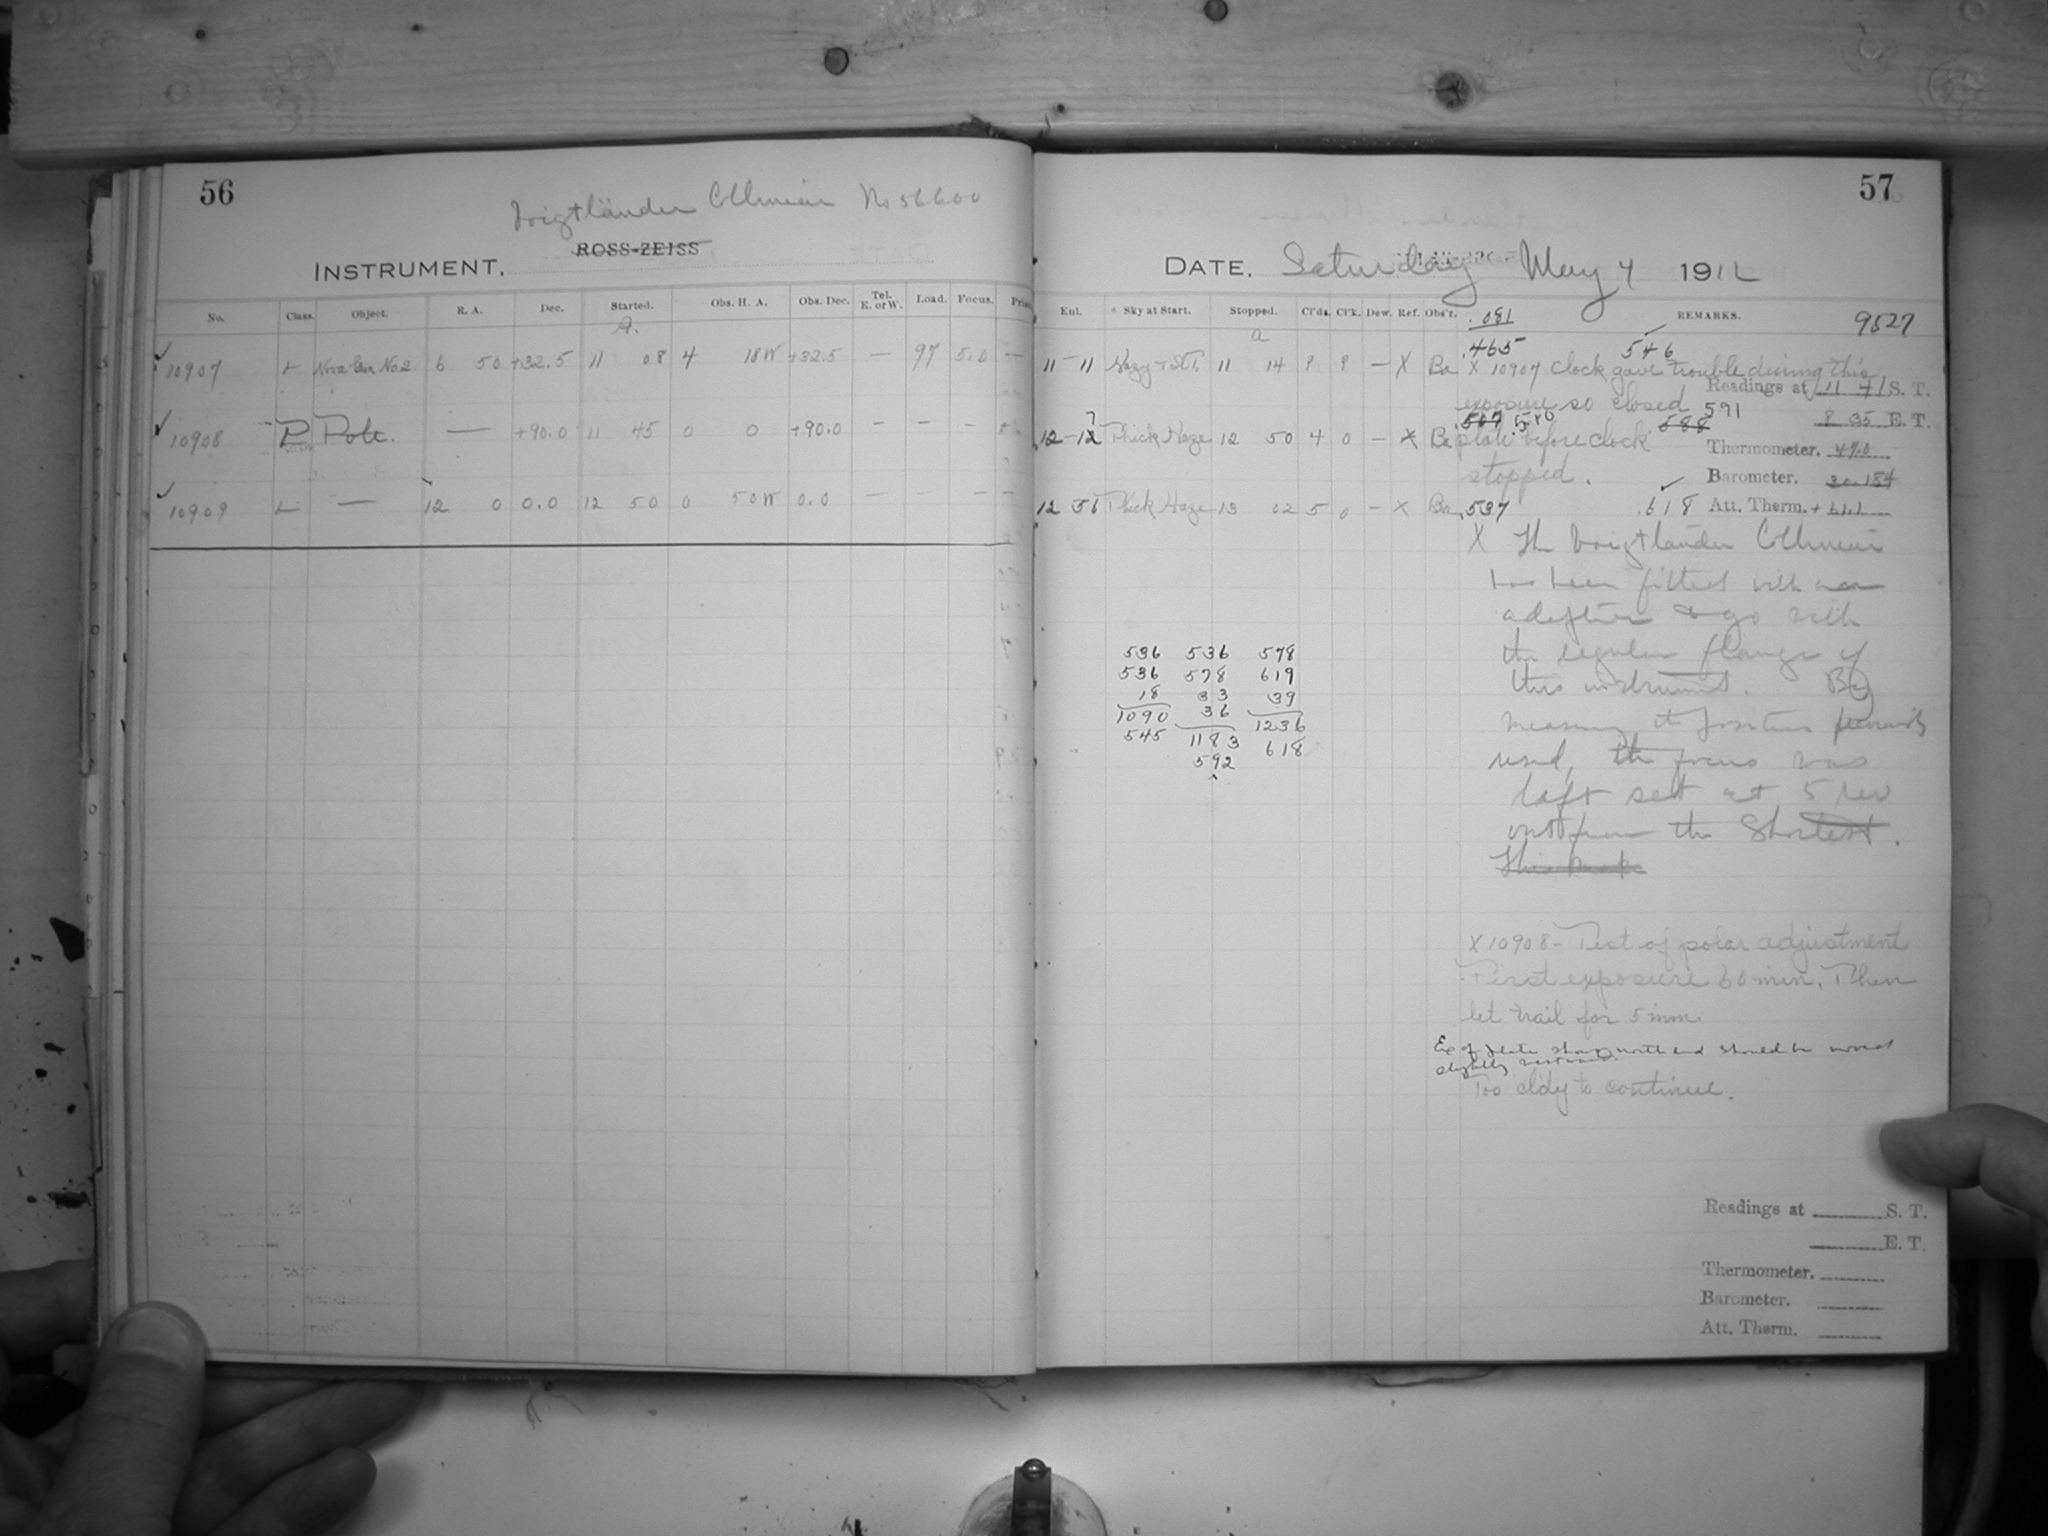 56
Voigtländer Collinear No 56600
ROSS-ZEISS
INSTRUMENT.
No. Class. Object. R. A. Dec. Started. Obs. H. A. Obs. Dec. Tel. E. or W. Load. Focus.
10907 L No. 2 6 50 +32.5 11 08 4 18W +32.5 — 97 5.0 —
10908 P Pole. — +90.0 11 45 0 0 +90.0 — — —
10909 L — 12 0 0.0 12 50 0 50W 0.0 — — — —
57
DATE. Saturday May 4 1912
Enl. Sky at Start. Stopped. Cl'ds. Cl'k. Dew. Ref. Obs'r. .081 REMARKS. 9527
.465 546
11 11 Hazy + St. 11 14 9 9 — X Ba X 10907 Clock gave trouble during this
Readings at 11 7 S. T.
exposure so closed 591
8 35 E. T.
12 12 Thick Haze 12 50 4 0 — X Ba plate before clock 588
Thermometer. 49.0
stopped.
Barometer. 30.154
12 56 Thick Haze 13 02 5 0 — X Ba .537 .618 Att. Therm.
X The Voigtländer Collinear
has been fitted with an
to go with
the regular flange of
this instrument. By
measuring the position previously
used, the focus was
left set at 5 rev
out from the Shortest.
536 536 578
536 578 619
18 33 39
1090 36 1236
545 1183 618
592
X 10908 - Test of polar adjustment
First exposure 60 min. Then
let trail for 5 min.
Ex of plate shows north end should be moved
slightly
Too cldy to continue.
Readings at S. T.
E. T.
Thermometer.
Barometer.
Att. Therm.